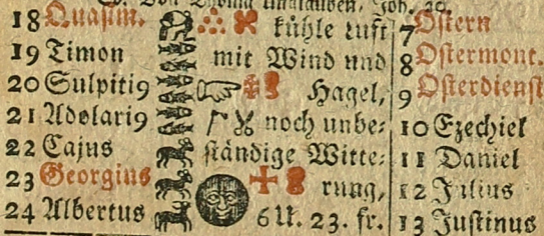 18 Quasim. kühle Luft 7 Ostern
19 Timon mit Wind und 8 Ostermont.
20 Sulpitiꝰ Hagel, 9 Osterdienst
21 Adolariꝰ noch unbe⸗ 10 Ezechiel
22 Cajus ständige Witte⸗ 11 Daniel
23 Georgius rung, 12 Julius
24 Albertus 6 U. 23. fr. 13 Justinus